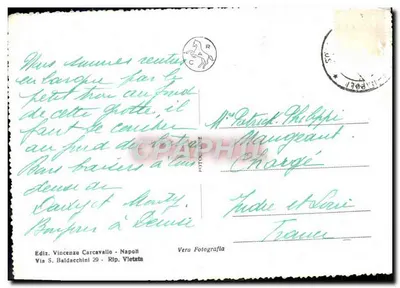 Nous sommes rentrés
en barque par le
petit trou au fond
de cette grotte, il
faut se coucher
au fond du
Bons baisers à tous
deux de
et Monty.
Bonjour à Denise
Patrick Philippe
Mangeant
Chargé
Indre et Loire
France
CARTEPHILIE
Ediz. Vincenzo Carcavallo - Napoli
Via S. Baldacchini 29 - Rip. Vietata
Vera Fotografia